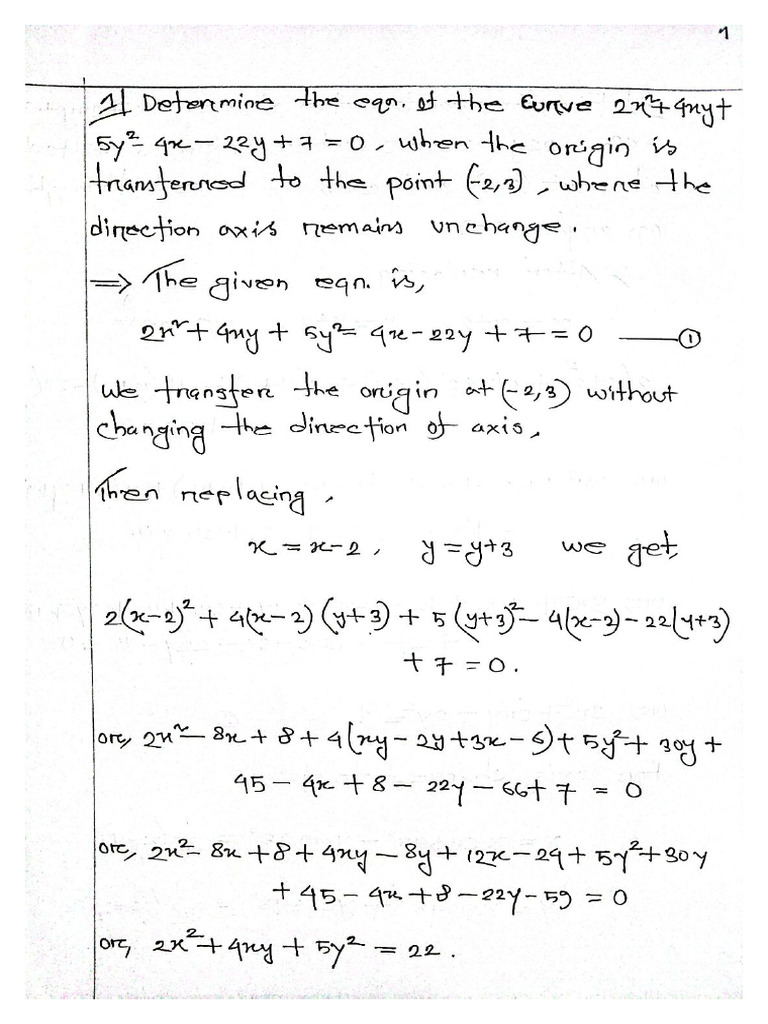 1
1| Determine the eqn. of the curve 2x²+4xy+
5y²-4x-22y+7=0, when the origin is
transferred to the point (-2,3), where the
direction axis remains unchange.
⇒ The given eqn. is,
2x²+4xy+5y²-4x-22y+7=0 —— ①
We transfer the origin at (-2,3) without
changing the direction of axis,
Then replacing,
x=x-2, y=y+3 we get,
2(x-2)²+4(x-2)(y+3)+5(y+3)²-4(x-2)-22(y+3)
+7=0.
or, 2x²-8x+8+4(xy-2y+3x-6)+5y²+30y+
45-4x+8-22y-66+7=0
or, 2x²-8x+8+4xy-8y+12x-24+5y²+30y
+45-4x+8-22y-59=0
or, 2x²+4xy+5y²=22.